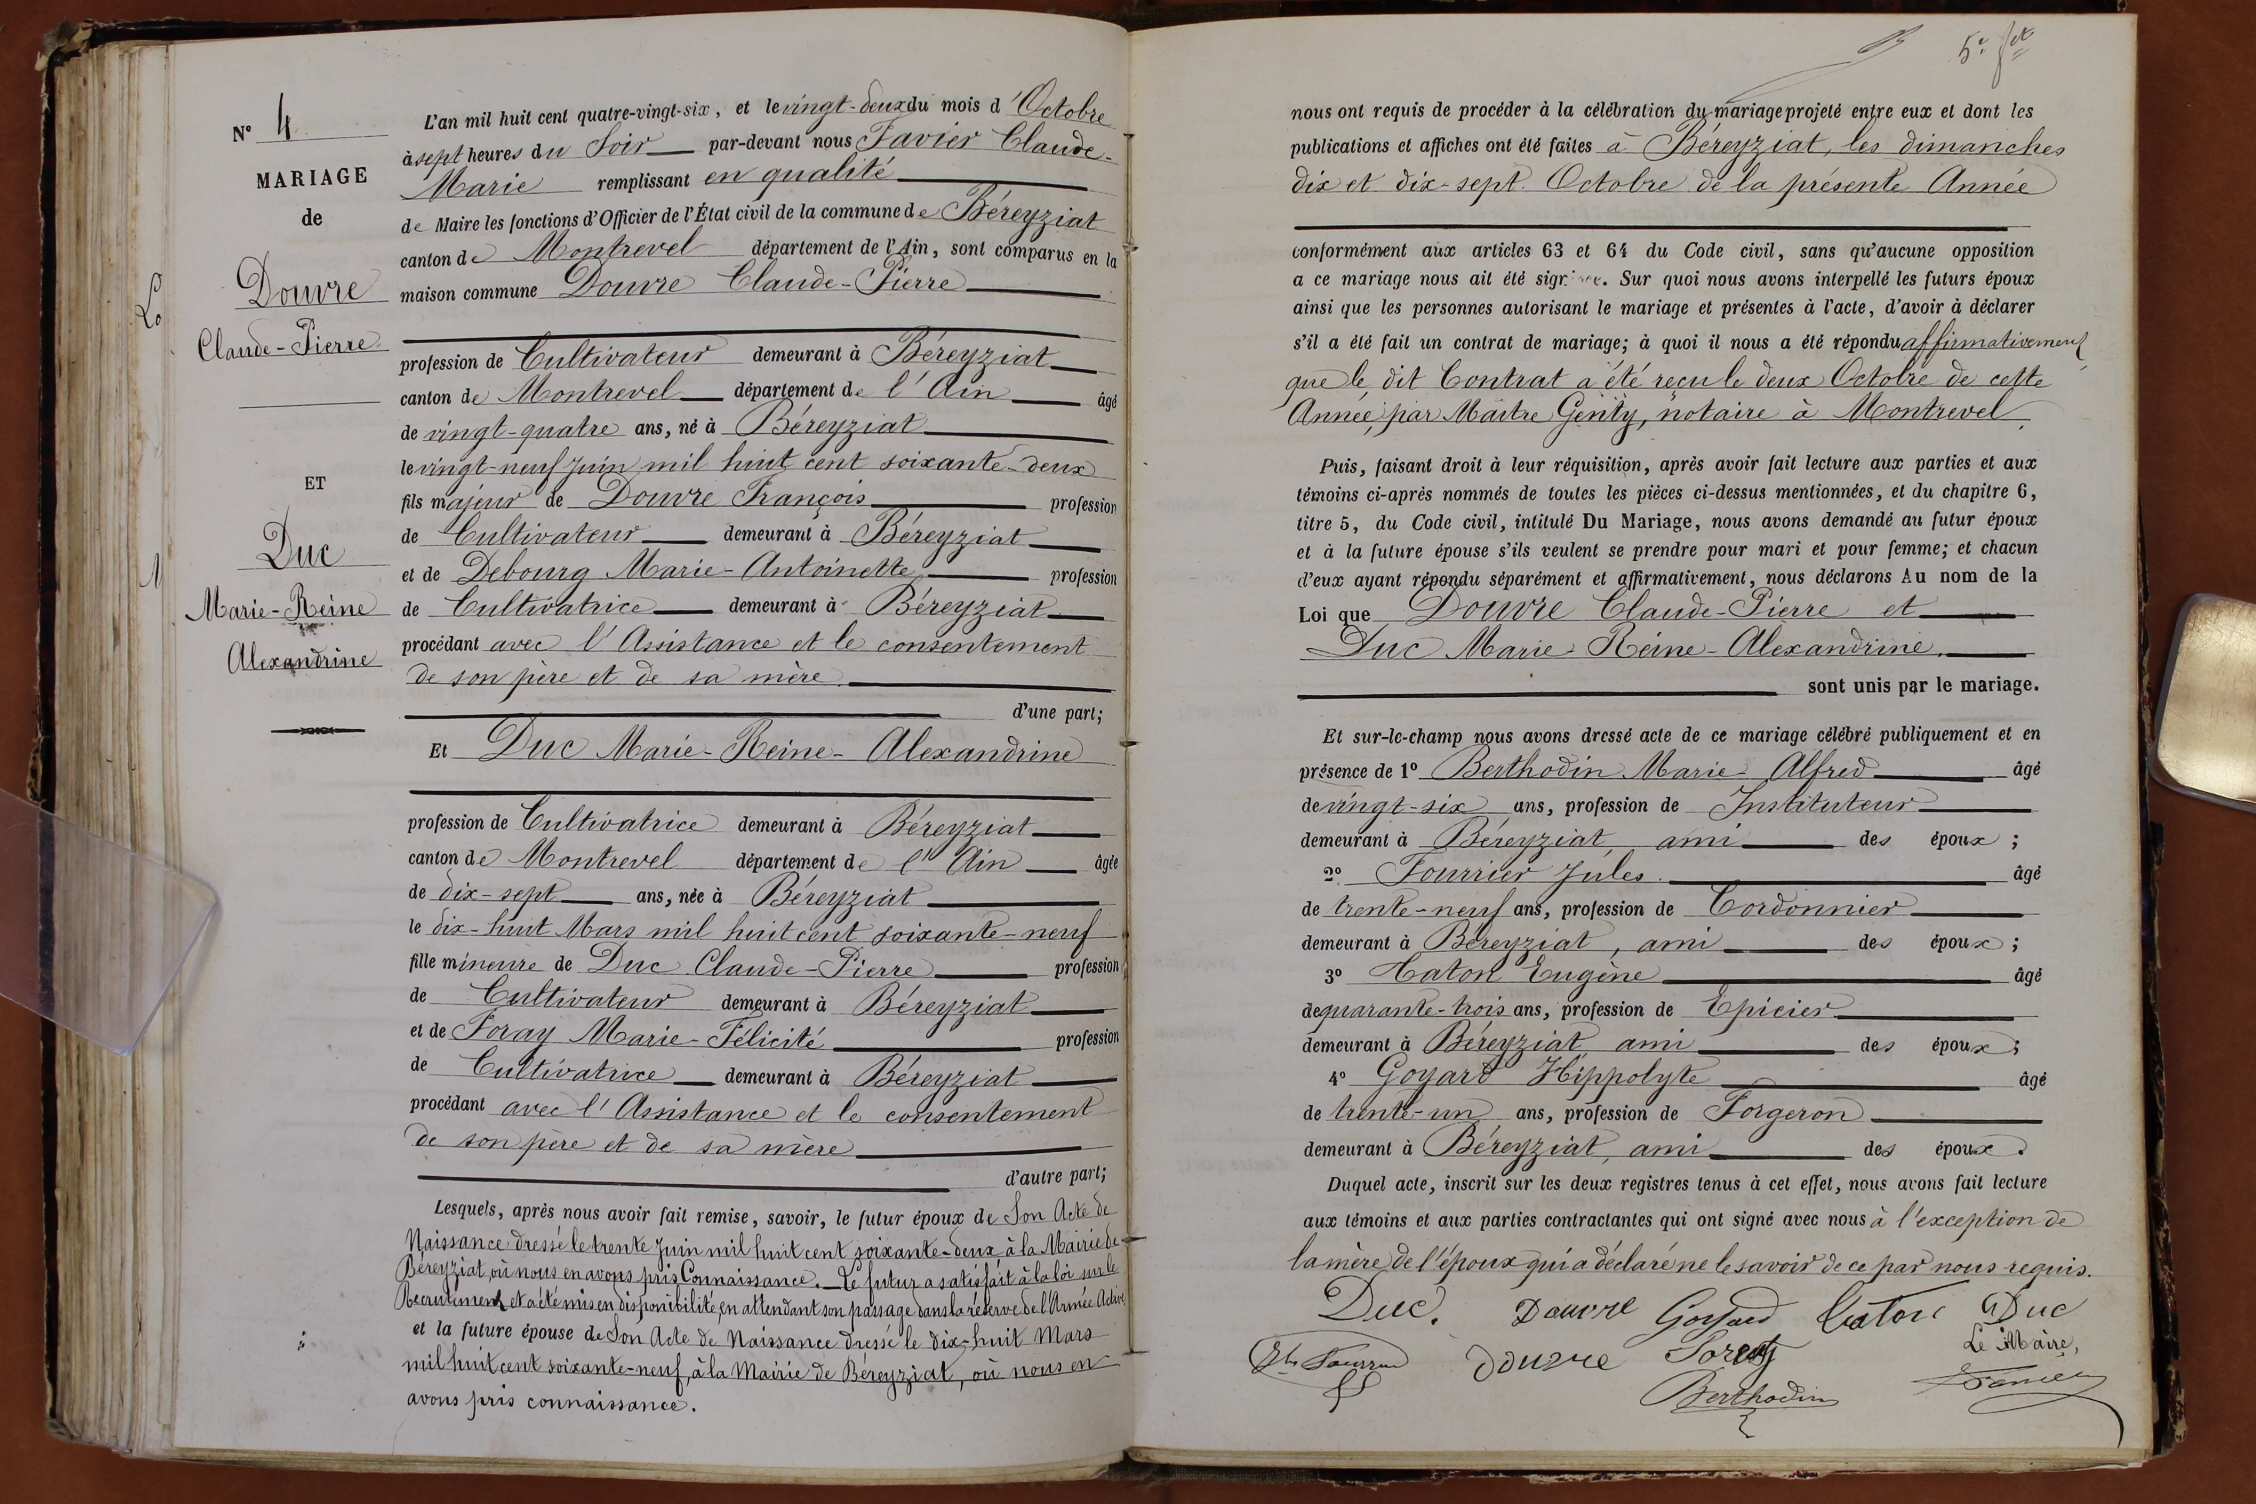 N° 4
MARIAGE
de
Douvre
Claude-Pierre
ET
Duc
Marie-Reine
Alexandrine
L'an mil huit cent quatre-vingt-six, et le vingt-deux du mois d'Octobre
à sept heures du Soir par-devant nous Favier Claude-
Marie remplissant en qualité
de Maire les fonctions d'Officier de l'État civil de la commune de Béreyziat
canton de Montrevel département de l'Ain, sont comparus en la
maison commune Douvre Claude-Pierre
profession de Cultivateur demeurant à Béreyziat
canton de Montrevel département de l'Ain âgé
de vingt-quatre ans, né à Béreyziat
le vingt-neuf Juin mil huit cent soixante-deux
fils majeur de Douvre François profession
de Cultivateur demeurant à Béreyziat
et de Debourg Marie-Antoinette profession
de Cultivatrice demeurant à Béreyziat
procédant avec l'Assistance et le consentement
de son père et de sa mère
d'une part;
Et Duc Marie-Reine-Alexandrine
profession de Cultivatrice demeurant à Béreyziat
canton de Montrevel département de l'Ain âgée
de dix-sept ans, née à Béreyziat
le dix-huit Mars mil huit cent soixante-neuf
fille mineure de Duc Claude-Pierre profession
de Cultivateur demeurant à Béreyziat
et de Foray Marie-Félicité profession
de Cultivatrice demeurant à Béreyziat
procédant avec l'Assistance et le consentement
de son père et de sa mère
d'autre part;
Lesquels, après nous avoir fait remise, savoir, le futur époux de Son Acte de
Naissance dressé le trente Juin mil huit cent soixante-deux à la Mairie de
Béreyziat, où nous en avons pris Connaissance. Le futur a satisfait à la loi sur le
Recrutement et a été mis en disponibilité, en attendant son passage dans la réserve de l'Armée Active
et la future épouse de Son Acte de Naissance dressé le dix-huit Mars
mil huit cent soixante-neuf, à la Mairie de Béreyziat, où nous en
avons pris connaissance.
5e
nous ont requis de procéder à la célébration du mariage projeté entre eux et dont les
publications et affiches ont été faites à Béreyziat, les dimanches
dix et dix-sept Octobre de la présente Année
conformément aux articles 63 et 64 du Code civil, sans qu'aucune opposition
a ce mariage nous ait été signifiée. Sur quoi nous avons interpellé les futurs époux
ainsi que les personnes autorisant le mariage et présentes à l'acte, d'avoir à déclarer
s'il a été fait un contrat de mariage; à quoi il nous a été répondu affirmativement
que le dit Contrat a été reçu le deux Octobre de cette
Année, par Maître Genty, notaire à Montrevel.
Puis, faisant droit à leur réquisition, après avoir fait lecture aux parties et aux
témoins ci-après nommés de toutes les pièces ci-dessus mentionnées, et du chapitre 6,
titre 5, du Code civil, intitulé Du Mariage, nous avons demandé au futur époux
et à la future épouse s'ils veulent se prendre pour mari et pour femme; et chacun
d'eux ayant répondu séparément et affirmativement, nous déclarons Au nom de la
Loi que Douvre Claude-Pierre et
Duc Marie-Reine-Alexandrine
sont unis par le mariage.
Et sur-le-champ nous avons dressé acte de ce mariage célébré publiquement et en
présence de 1° Berthodin Marie-Alfred âgé
de vingt-six ans, profession de Instituteur
demeurant à Béreyziat, ami des époux;
2° Fourrier Jules âgé
de trente-neuf ans, profession de Cordonnier
demeurant à Béreyziat, ami des époux;
3° Caton Eugène âgé
de quarante-trois ans, profession de Epicier
demeurant à Béreyziat ami des époux;
4° Goyard Hippolyte âgé
de trente-un ans, profession de Forgeron
demeurant à Béreyziat, ami des époux.
Duquel acte, inscrit sur les deux registres tenus à cet effet, nous avons fait lecture
aux témoins et aux parties contractantes qui ont signé avec nous à l'exception de
la mère de l'époux qui a déclaré ne le savoir de ce par nous requis.
Duc. Douvre Goyard Caton Duc
Le Maire,
Douvre
Berthodin Favier